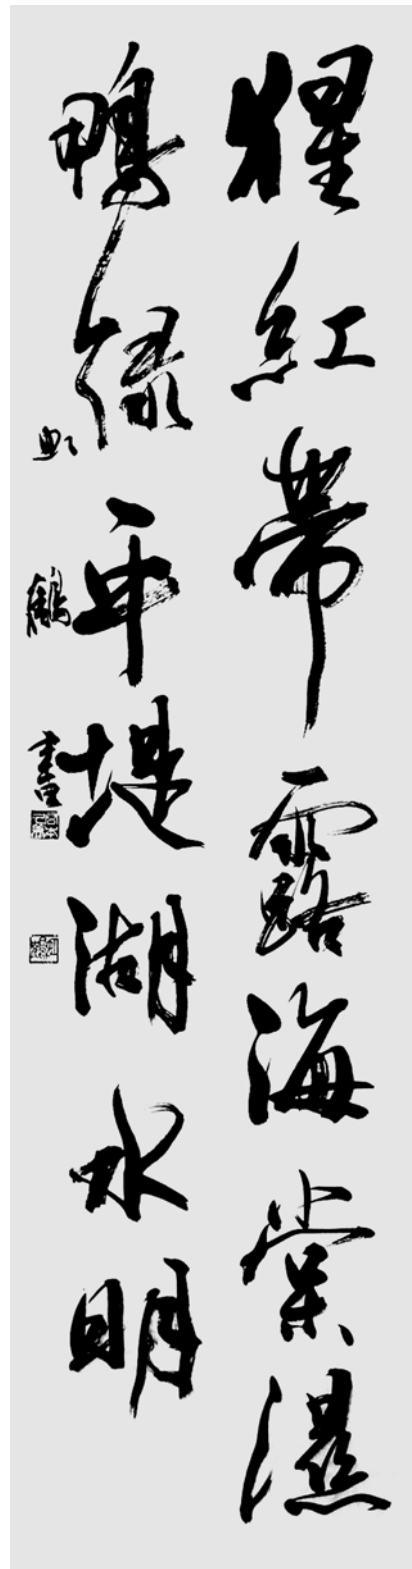 猩紅帶露海棠濕
鴨緑平堤湖水明
鶴書